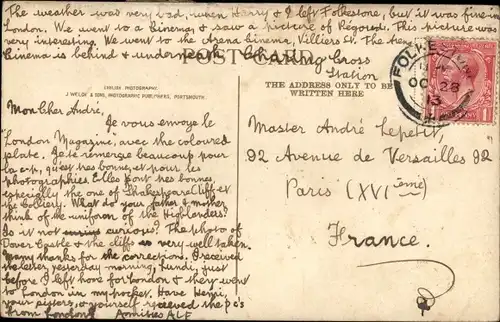 The weather was very bad, when Harry & I left Folkestone, but it was fine in
London. We went to a Cinema, & saw a picture of Pégoud. This picture was
very interesting. We went to the Arena Cinema, Villiers St. The
Cinema is behind & underneath Charing Cross
Station
POST CARD
ENGLISH PHOTOGRAPHS
J WELCH & SONS, PHOTOGRAPHIC PUBLISHERS, PORTSMOUTH.
THE ADDRESS ONLY TO BE
WRITTEN HERE
FOLKESTONE
OC 28
13
Mon Cher André,
Je vous envoye le
London Magazine, avec the coloured
plate. Je te remerge beaucoup pour
la quest tres bonne, et pour les
photographies. Elles sont tres bonnes
especially the one of Shakespeare Cliff et
the Colliery. What do your father & mother
think of the uniform of the Highlanders?
Is it not curious? The photo of
Dover Castle & the cliffs is very well taken.
Many thanks for the correction. I received
the letter yesterday morning, Lundi, just
before I left home for London & they went
to London in my pocket. Have Henri,
your sisters, & yourself received the p.c's
from London? Amities Alf
Master André Lepetit,
92 Avenue de Versailles 92
Paris (XVI ième)
France.